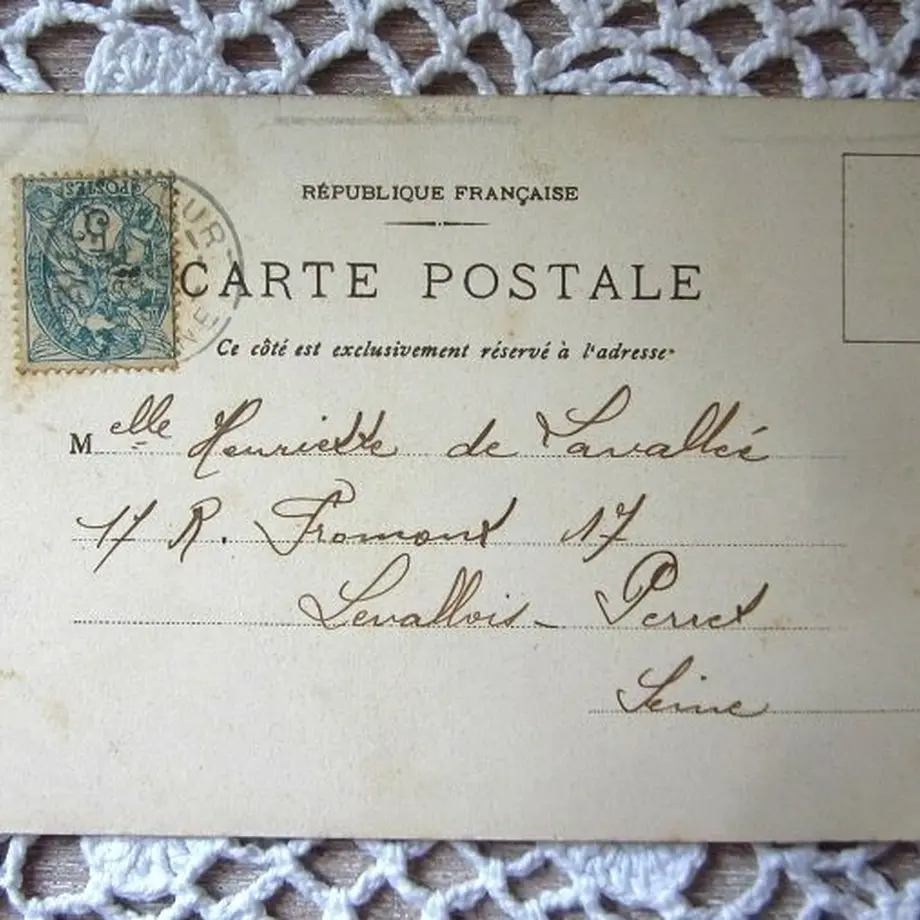 RÉPUBLIQUE FRANÇAISE
CARTE POSTALE
Ce côté est exclusivement réservé à l'adresse
POSTES
5
UR
NE
Melle Henriette de Lavallée
17 R. Fromont 17
Levallois - Perret
Seine